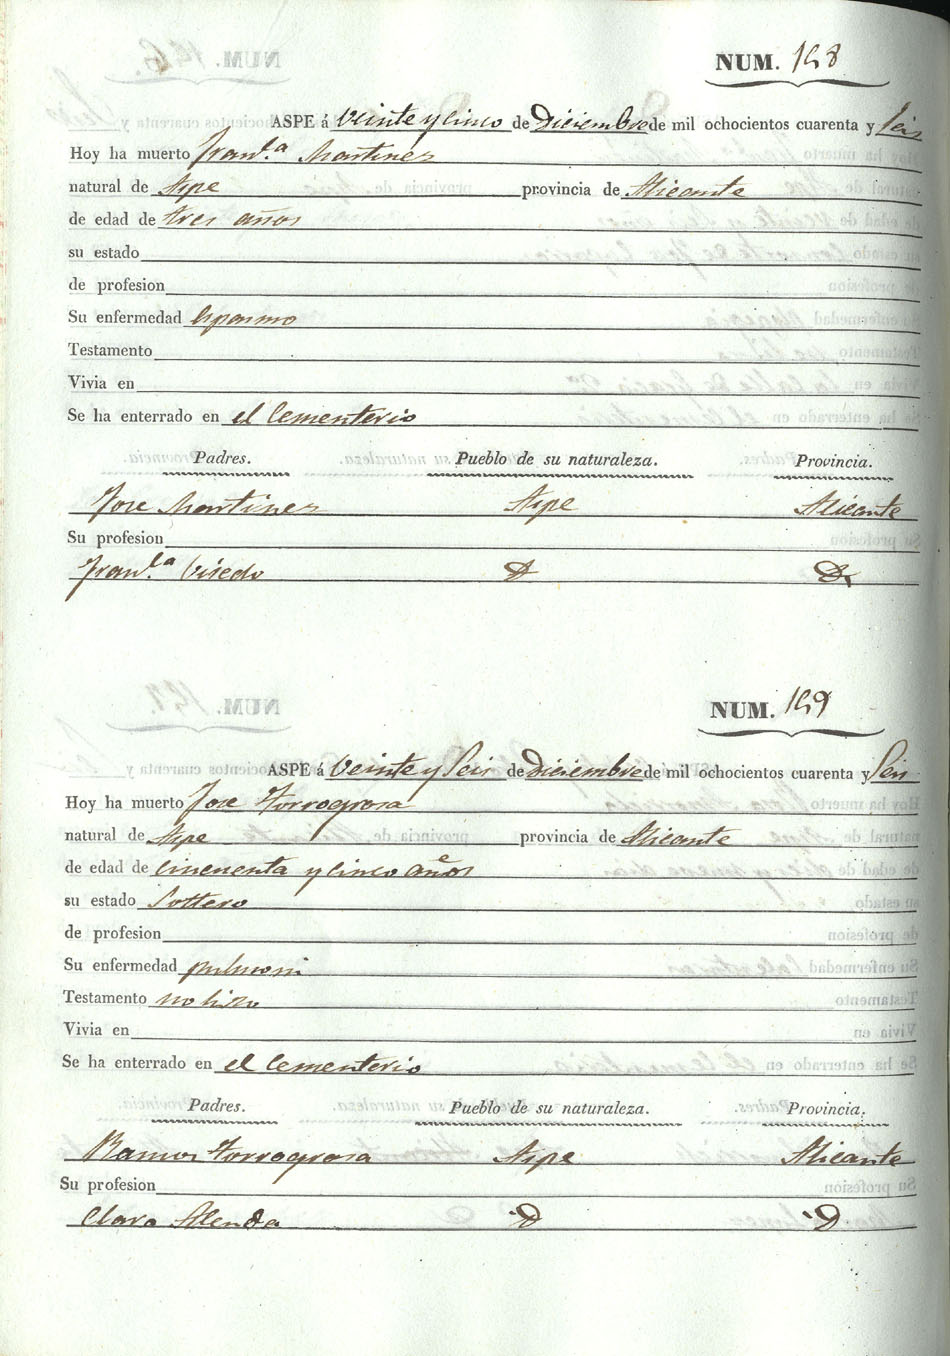 NUM. 148
ASPE á veinte y cinco de Diciembre de mil ochocientos cuarenta y seis
Hoy ha muerto Fran.ca Martines
natural de Aspe provincia de Alicante
de edad de tres años
su estado
de profesion
Su enfermedad espasmo
Testamento
Vivia en
Se ha enterrado en el Cementerio
Padres. Pueblo de su naturaleza. Provincia.
Jose Martines Aspe Alicante
Su profesion
Fran.ca Cisedo D D
NUM. 149
ASPE á veinte y seis de Diciembre de mil ochocientos cuarenta y seis
Hoy ha muerto Jose Torregrosa
natural de Aspe provincia de Alicante
de edad de cincuenta y cinco años
su estado Soltero
de profesion
Su enfermedad pulmoni
Testamento no hizo
Vivia en
Se ha enterrado en el Cementerio
Padres. Pueblo de su naturaleza. Provincia.
Ramon Torregrosa Aspe Alicante
Su profesion
Clara Alenda D D